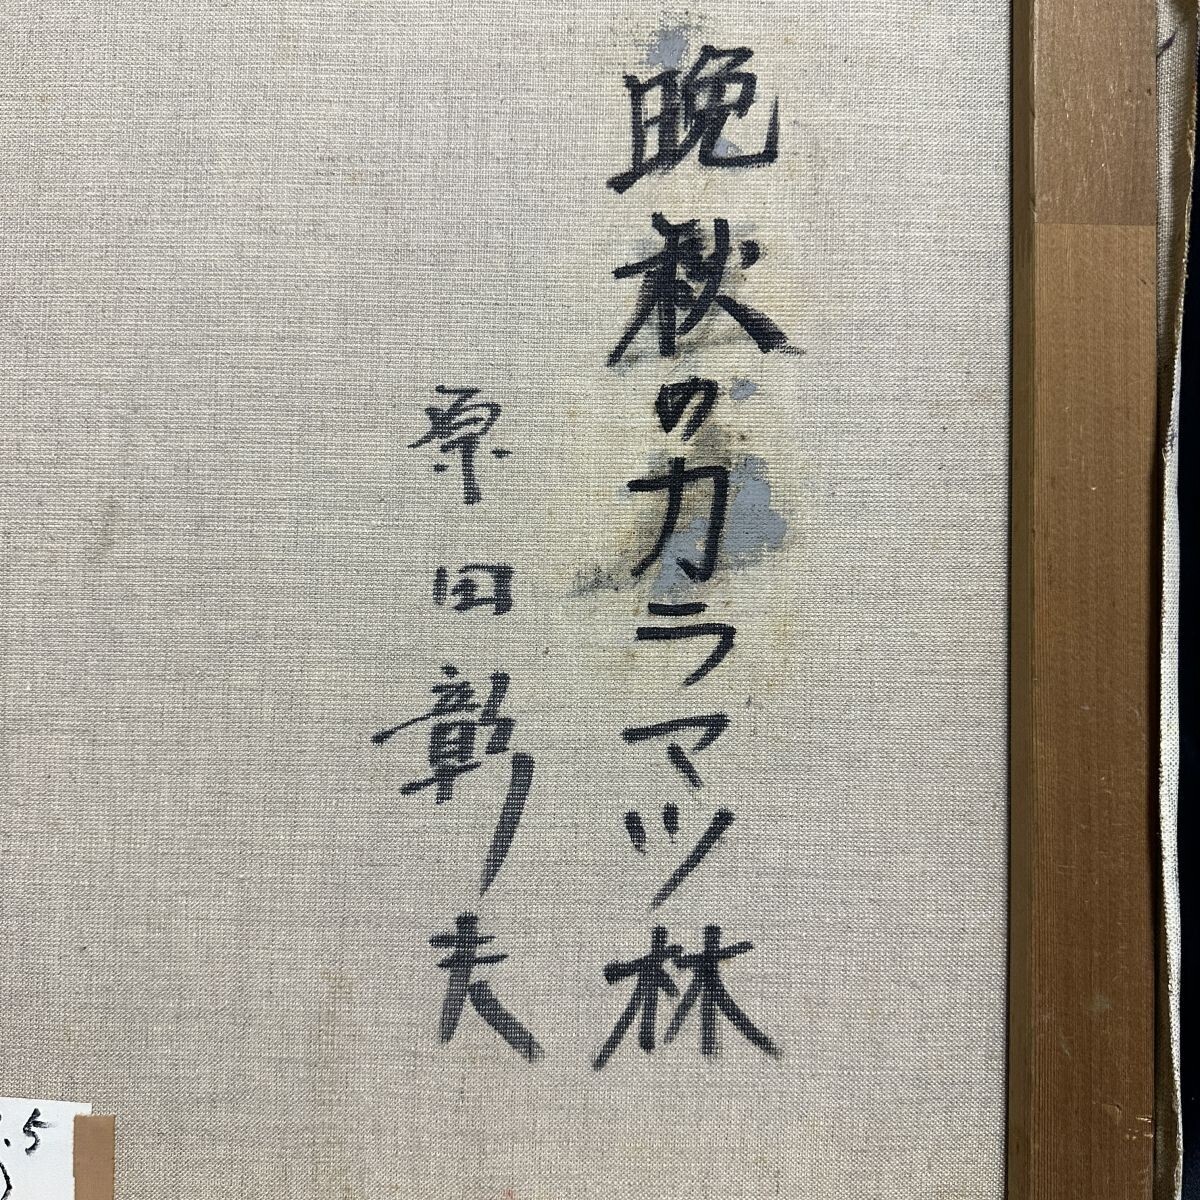 晩秋のカラマツ林
原田彰夫
.5